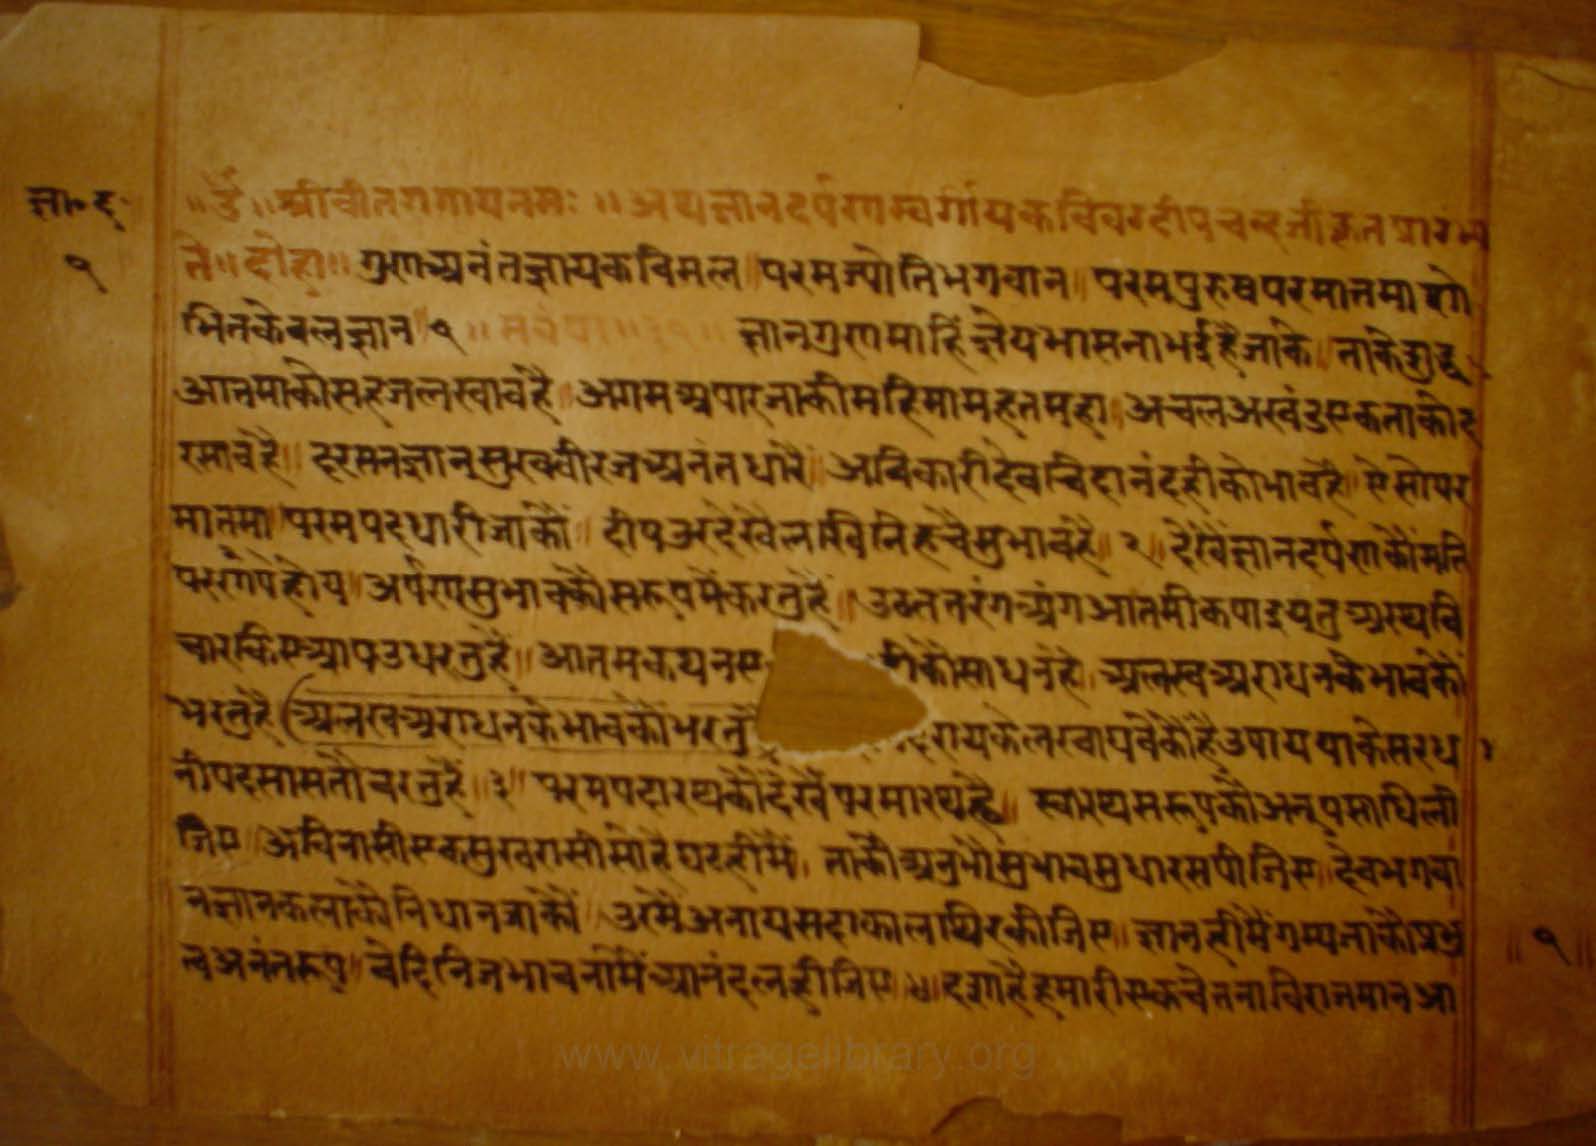 ज्ञा॰ द॰
१
॥ ॐ ॥ श्रीवीतरागायनमः ॥ अथज्ञानदर्पण स्वर्गीयकविवरदीपचन्दजीकृत प्रारभ्य
ते ॥ दोहा ॥ गुणअनंतज्ञायकविमल ॥ परमज्योतिभगवान ॥ परमपुरुषपरमातमा शो
भितकेवलज्ञान १ ॥ सवैया ॥ ३१ ॥ ज्ञानगुणमाहिं ज्ञेयभासनाभईहैजाके ॥ ताकेशुद्ध
आतमाकोसहजलखावहै ॥ अगमअपारजाकीमहिमामहतमहा ॥ अचलअखंडएकताकोद
रसावहै ॥ दरसनज्ञानसुखवीरजअनंतधारै ॥ अविकारीदेवचिदानंदहीकोभावहै ॥ ऐसोपर
मातमा ॥ परमपदधारीजाकौं ॥ दीपउरदेखैलखिनिहचैसुभावहै ॥ २ ॥ देखैंज्ञानदर्पणकौंमति
परणपेहोय ॥ अर्पणसुभावकौसरूपमेंकरतुहैं ॥ उठततरंगअंगआतमीकपाइयतु अरथवि
चारकिएआपउधरतुहैं ॥ आतमकथनए हीकौसाधनहै ॥ अलखअराधनकेभावकौं
भरतुहै (अलखअराधनकेभावकौंभरतु दरायकेलखायवेकोहैउपाय याकेसरध
नीपदसासतौवरतुहैं ॥ ३ ॥ परमपदारथकौंदेखैंपरमारथह्वै ॥ स्वारथसरूपकौअनूपसाधिली
जिए ॥ अविनासीएकसुखरासीसोहैघटहीमें ॥ ताकौअनुभौसुभावसुधारसपीजिए ॥ देवभगवा
नज्ञानकलाकौनिधानजाकौं ॥ उरमेंअनायसदाकालथिरकीजिए ॥ ज्ञानहीमैंगम्यजाकौप्रभु
त्वअनंतरूप ॥ वेदिनिजभावनामेंआनंदलहीजिए ॥ ४ ॥ दशाहैहमारीएकचेतनाविराजमान आ
॥ १ ॥
www.vitragelibrary.org